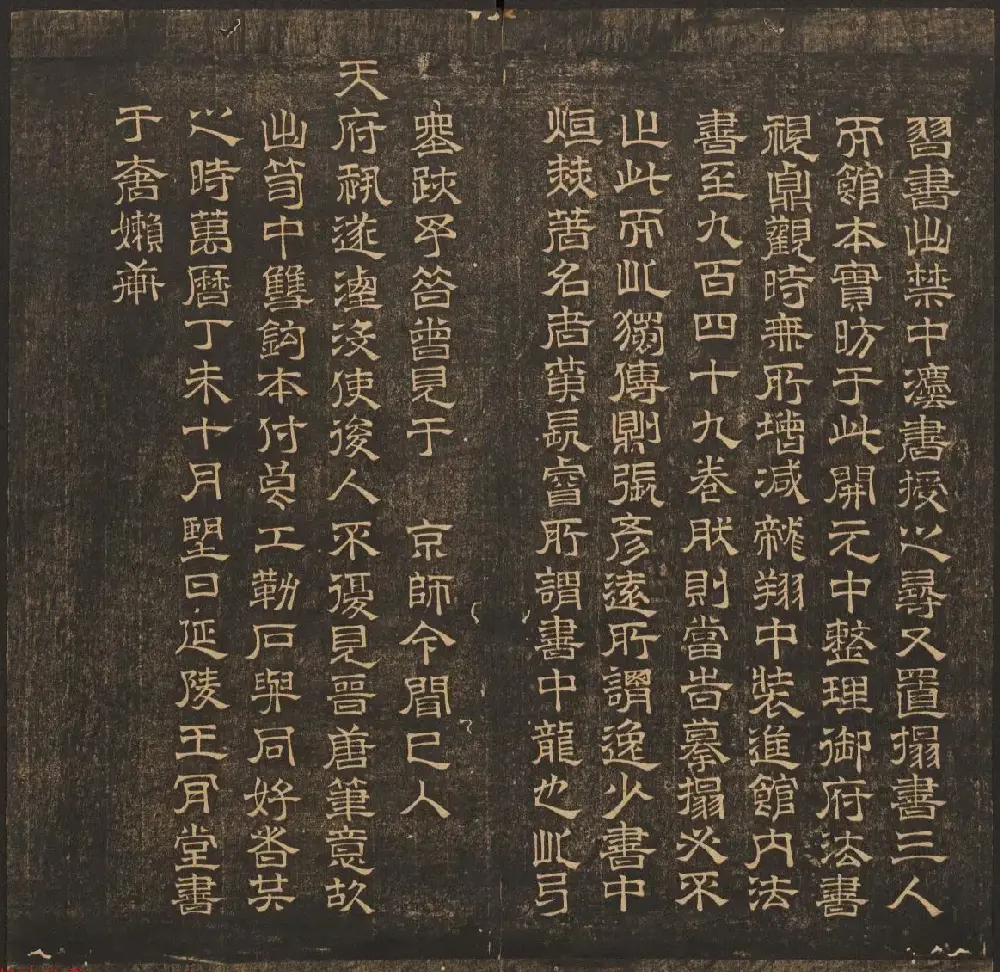 習書出禁中灋書授之尋又置搨書三人
而館本實昉于此開元中整理御府法書
視貞觀時無所增減龍翔中裝進館內法
書至九百四十九卷然則當旹摹搨必不
止此而此獨傳則張彥遠所謂逸少書中
烜赫著名者黃長睿所謂書中龍也此弓
墨跡予昔曾見于 京師今聞已入
天府遂湮沒使後人不復見晉唐筆意故
出笥中雙鈎本付良工勒石與同好者共
之時萬曆丁未十月朢日延陵王肎堂書
于嬾